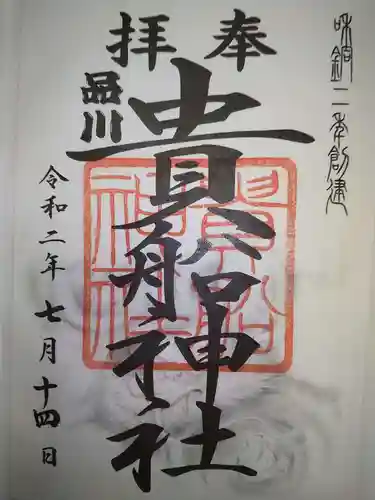 和銅二年創建
奉拝
品川
貴船神社
貴船神社
令和二年七月十四日